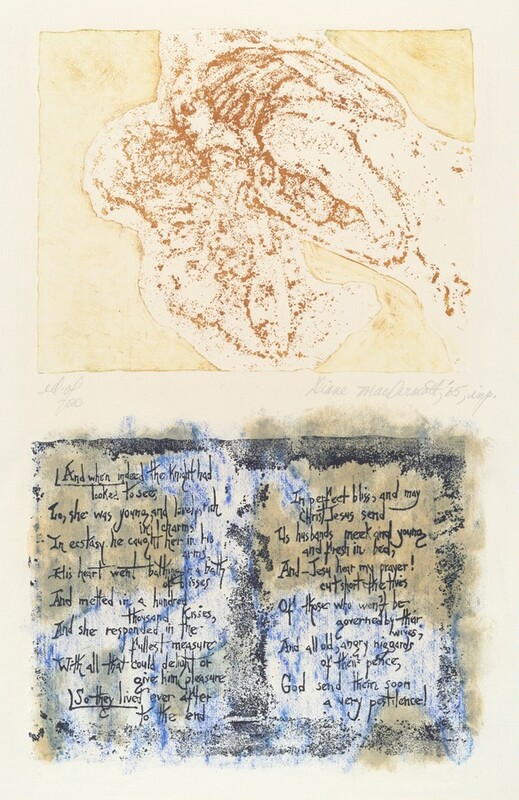 ed. of
Diane '65, imp.
And when indeed the Knight had
looked to see,
Lo, she was young, and lovely, rich
in charms.
In ecstasy he caught her in his
arms,
His heart went bathing in a bath
of blisses
And melted in a hundred
thousand kisses,
And she responded in the
fullest measure
With all that could delight or
give him pleasure
So they lived ever after
to the end
In perfect bliss; and may
Christ Jesus send
Us husbands meek and young
and fresh in bed,
And - Jesu hear my prayer!
cut short the lives
Of those who won't be
governed by their
wives;
And all old, angry niggards
of their pence,
God send them soon
a very pestilence!